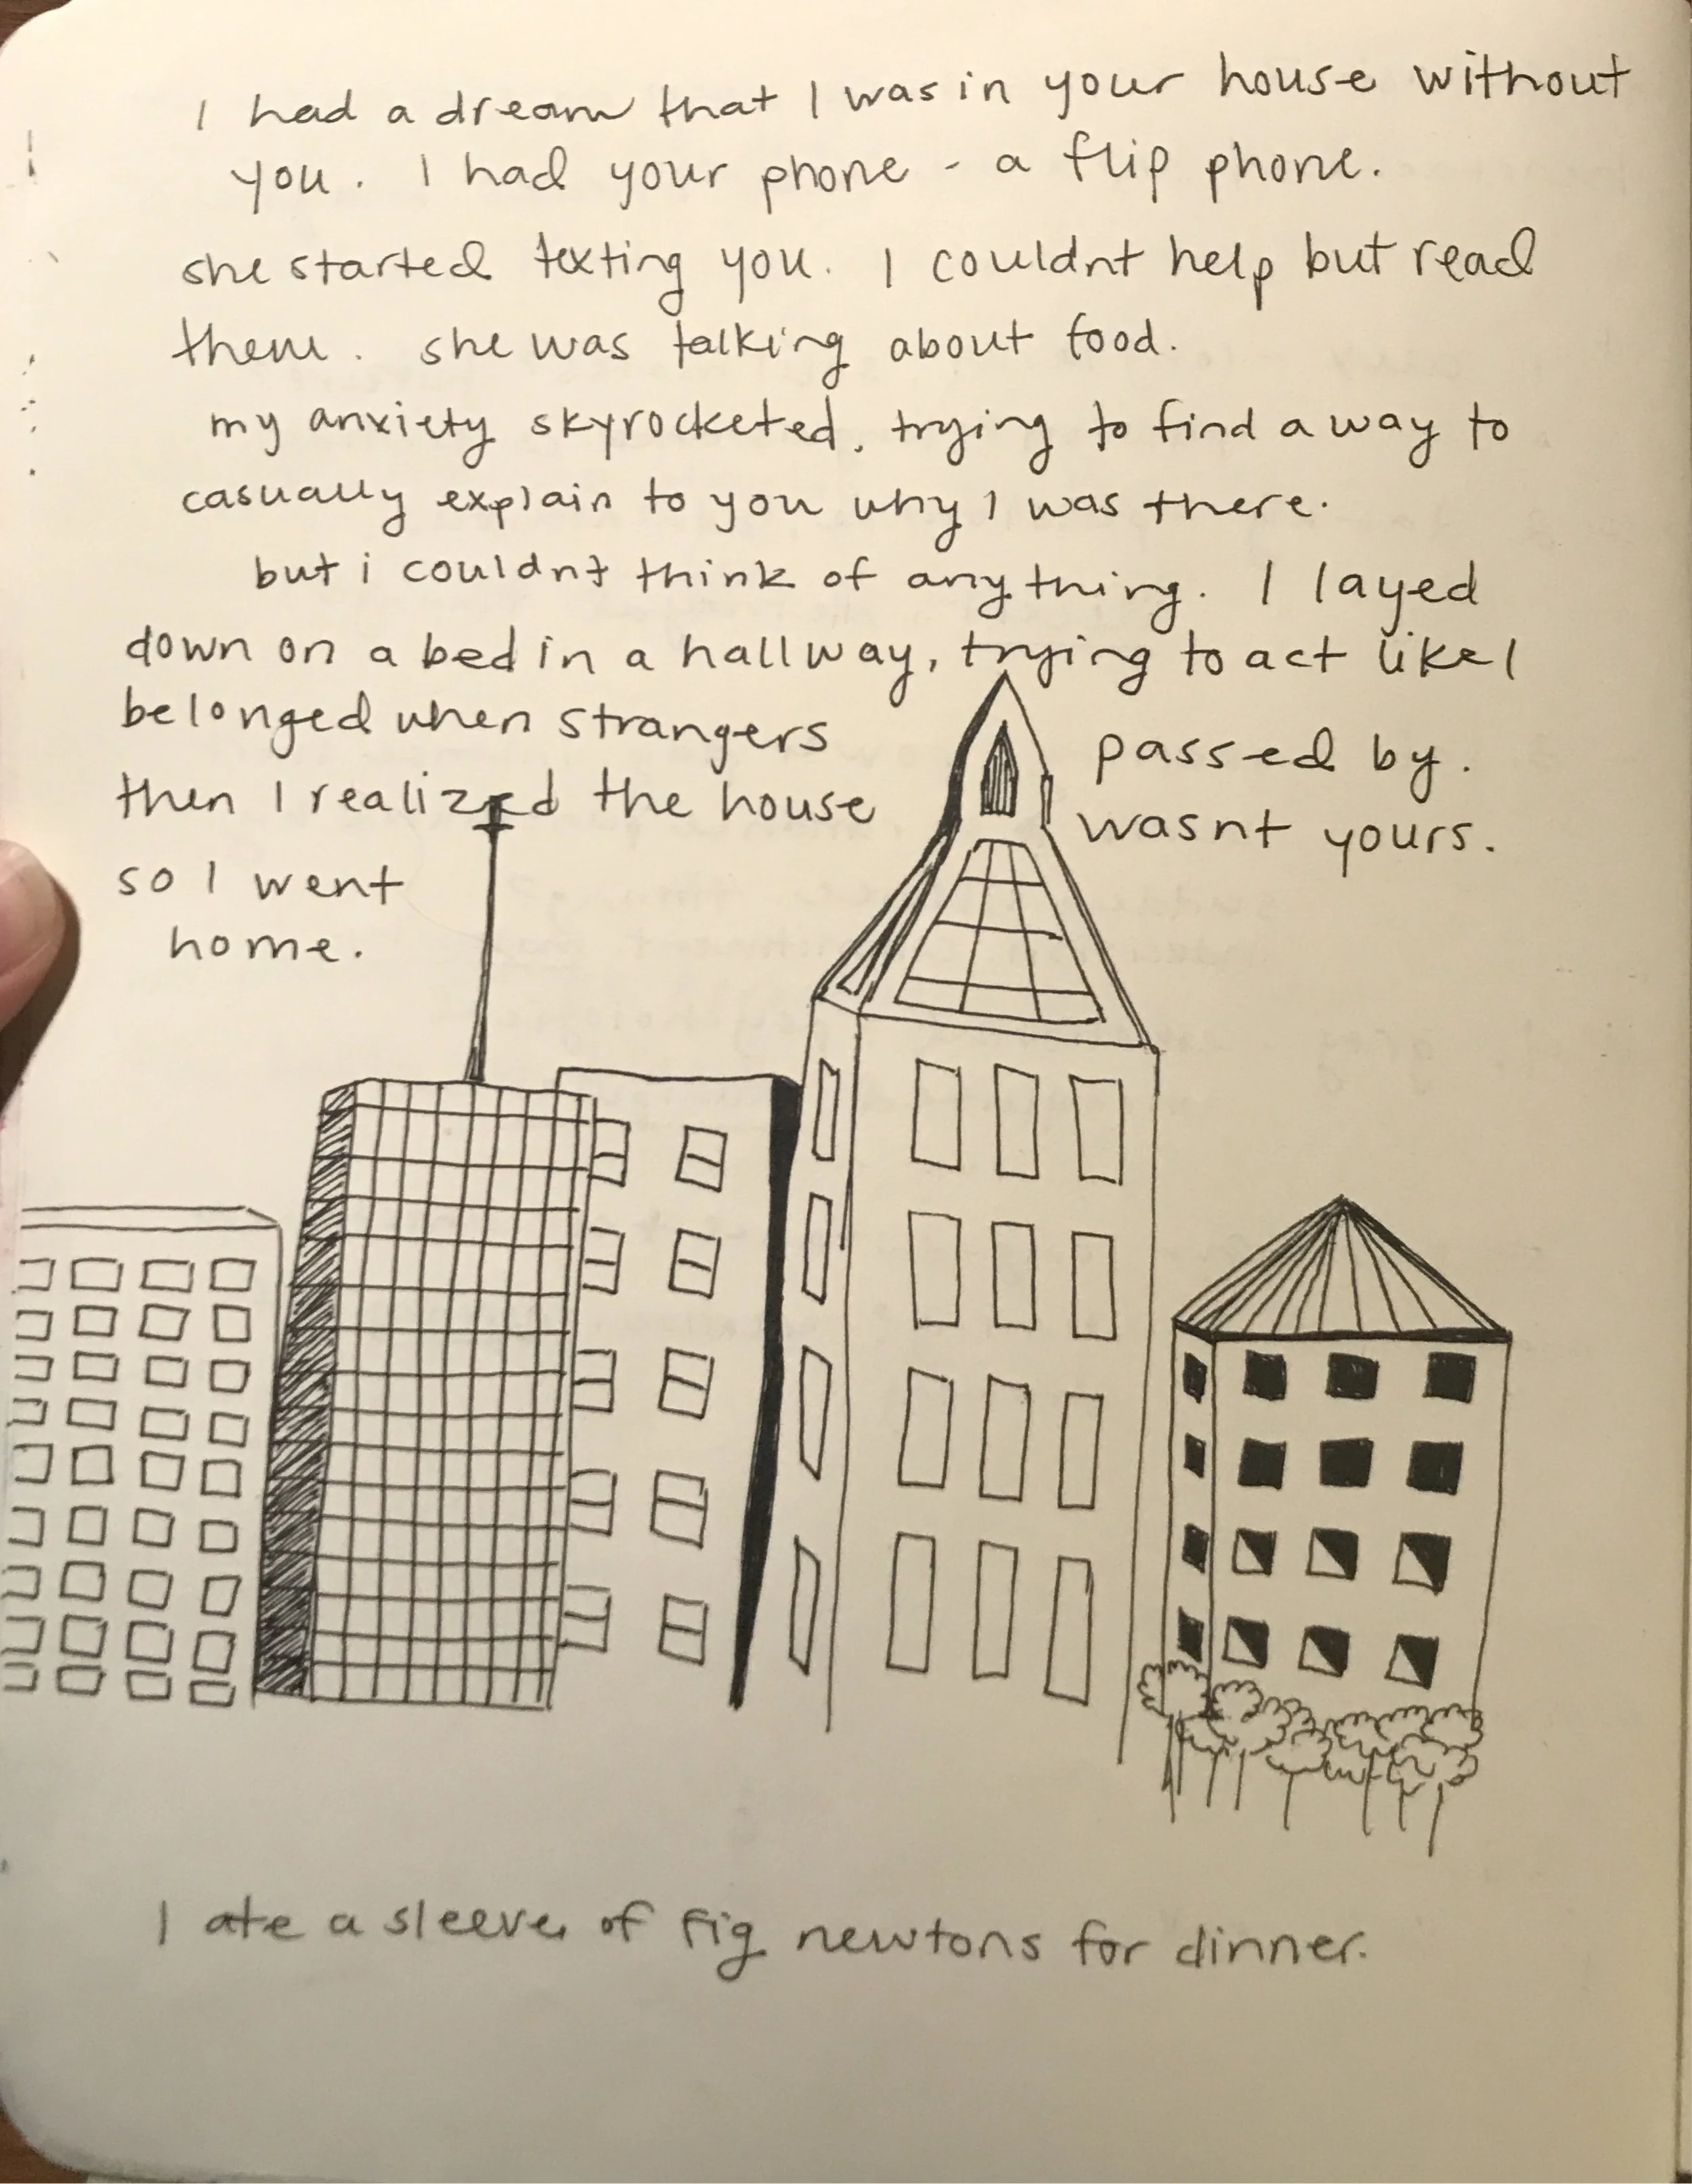 I had a dream that I was in your house without
you. I had your phone - a flip phone.
she started texting you. I couldnt help but read
them. she was talking about food.
my anxiety skyrocketed, trying to find a way to
casually explain to you why I was there.
but i couldnt think of anything. I layed
down on a bed in a hallway, trying to act like I
belonged when strangers passed by.
then I realized the house wasnt yours.
so I went
home.
I ate a sleeve of fig newtons for dinner.